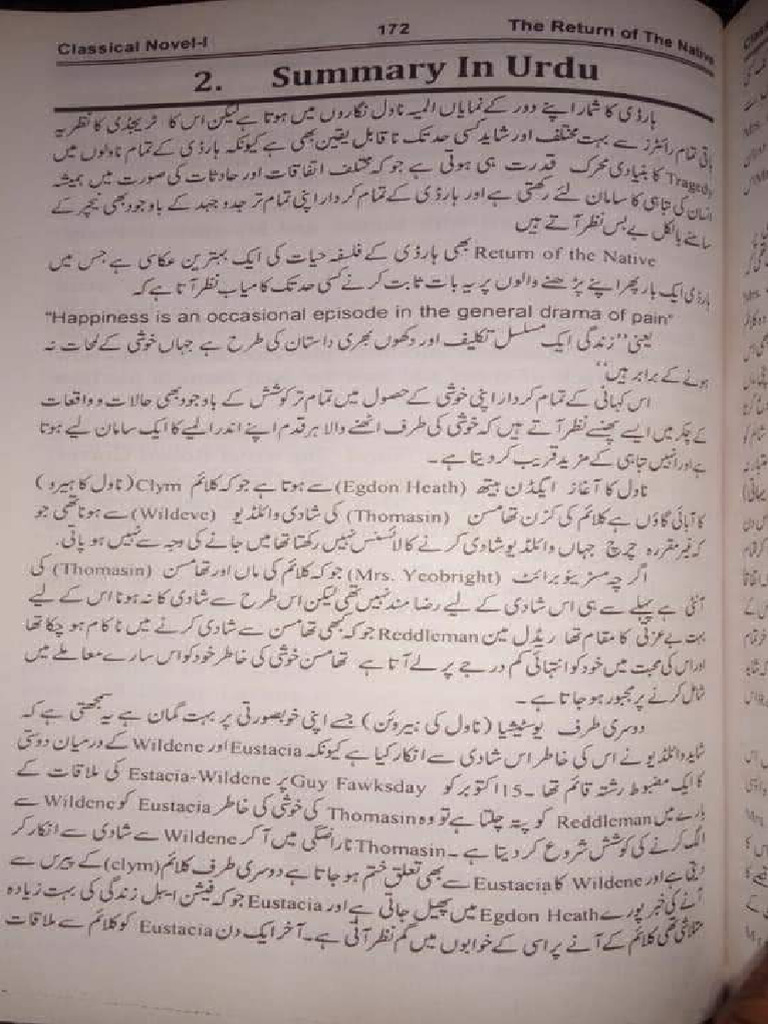 Classical Novel-I 172 The Return of The Native
2. Summary In Urdu
ہارڈی کا شمار اپنے دور کے نمایاں المیہ ناول نگاروں میں ہوتا ہے لیکن اس کا ٹریجڈی کا نظریہ
باقی تمام رائٹرز سے بہت مختلف اور شاید کسی حد تک نا قابل یقین بھی ہے کیونکہ ہارڈی کے تمام ناولوں میں
Tragedy کا بنیادی محرک قدرت ہی ہوتی ہے جو کہ مختلف اتفاقات اور حادثات کی صورت میں ہمیشہ
انسان کی تباہی کا سامان لئے رکھتی ہے اور ہارڈی کے تمام کردار اپنی تمام تر جدوجہد کے باوجود بھی نیچر کے
سامنے بالکل بے بس نظر آتے ہیں
Return of the Native بھی ہارڈی کے فلسفہ حیات کی ایک بہترین عکاسی ہے جس میں
ہارڈی ایک بار پھر اپنے پڑھنے والوں پر یہ بات ثابت کرنے کسی حد تک کامیاب نظر آتا ہے کہ
"Happiness is an occasional episode in the general drama of pain"
یعنی "زندگی ایک مسلسل تکلیف اور دکھوں بھری داستان کی طرح ہے جہاں خوشی کے لمحات نہ
ہونے کے برابر ہیں"
اس کہانی کے تمام کردار اپنی خوشی کے حصول میں تمام تر کوشش کے باوجود بھی حالات و واقعات
کے چکر میں ایسے پھنسے نظر آتے ہیں کہ خوشی کی طرف اٹھنے والا ہر قدم اپنے اندر المیے کا ایک سامان لیے ہوتا
ہے اور انہیں تباہی کے مزید قریب کر دیتا ہے۔
ناول کا آغاز ایگڈن ہیتھ (Egdon Heath) سے ہوتا ہے جو کہ کلائم Clym (ناول کا ہیرو)
کا آبائی گاؤں ہے کلائم کی کزن تھامسن (Thomasin) کی شادی وائلڈیو (Wildeve) سے ہونا تھی جو
کہ غیر مقررہ چرچ جہاں وائلڈیو شادی کرنے کا لائسنس نہیں رکھتا تھا میں جانے کی وجہ سے نہیں ہو پاتی.
اگرچہ مسز ییوبرائٹ (Mrs. Yeobright) جو کہ کلائم کی ماں اور تھامسن (Thomasin) کی
آنٹی ہے پہلے سے ہی اس شادی کے لیے رضامند نہیں تھی لیکن اس طرح سے شادی کا نہ ہونا اس کے لیے
بہت بے عزتی کا مقام تھا ریڈل مین Reddleman جو کہ کبھی تھامسن سے شادی کرنے میں ناکام ہو چکا تھا
اور اس کی محبت میں خود کو انتہائی کم درجے پر لے آتا ہے تھامسن خوشی کی خاطر خود کو اس سارے معاملے میں
شامل کرنے پر مجبور ہو جاتا ہے۔
دوسری طرف یوسٹیشیا (ناول کی ہیروئن) جسے اپنی خوبصورتی پر بہت گمان ہے یہ سمجھتی ہے کہ
شاید وائلڈیو نے اس کی خاطر اس شادی سے انکار کیا ہے کیونکہ Eustacia اور Wildene کے درمیان دوستی
کا ایک مضبوط رشتہ قائم تھا ۔ 15 اکتوبر کو Guy Fawksday پر Estacia-Wildene کی ملاقات کے
بارے میں Reddleman کو پتہ چلتا ہے تو وہ Thomasin کی خوشی کی خاطر Eustacia کو Wildene سے
الگ کرنے کی کوشش شروع کر دیتا ہے۔ Thomasin ناراضگی میں آ کر Wildene سے شادی سے انکار کر
دیتی ہے اور Wildene کا Eustacia سے بھی تعلق ختم ہو جاتا ہے دوسری طرف کلائم (clym) کے پیرس سے
آنے کی خبر پورے Egdon Heath میں پھیل جاتی ہے اور Eustacia جو کہ فیشن ایبل زندگی کی بہت زیادہ
متلاشی تھی کلائم کے آنے پر اسی کے خوابوں میں گم نظر آتی ہے۔ آخر ایک دن Eustacia کو کلائم سے ملاقات